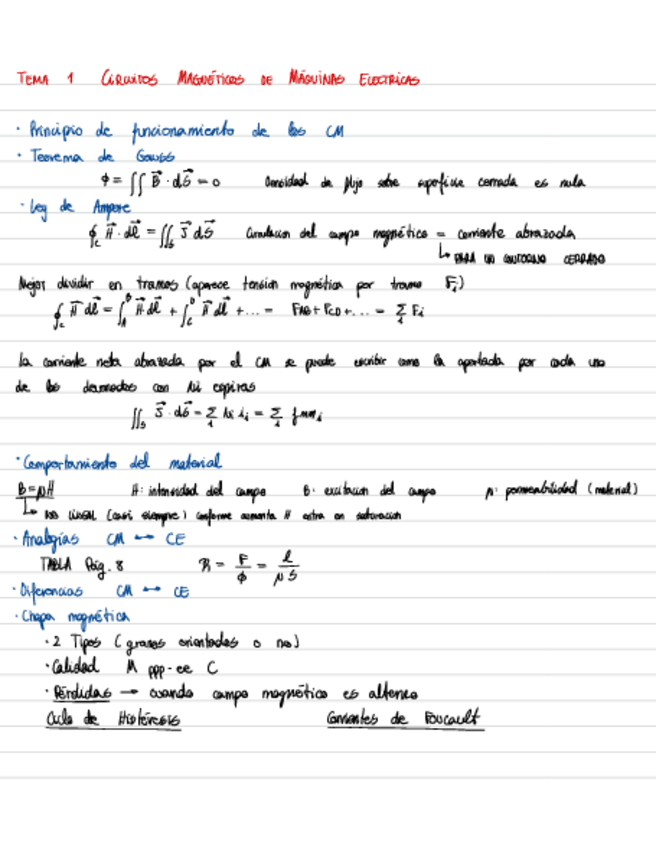 TEMA 1 CIRCUITOS MAGNÉTICOS DE MÁQUINAS ELECTRICAS
· Principio de funcionamiento de los CM
· Teorema de Gauss
ϕ = ∬ B⃗ · dS⃗ = 0 Densidad de flujo sobre superficie cerrada es nula
· Ley de Ampere
∮c H⃗ · dl⃗ = ∬s J⃗ dS⃗ Circulacion del campo magnético = corriente abrazada
↳ PARA UN CONTORNO CERRADO
Mejor dividir en tramos (aparece tensión magnética por tramo Fi)
∮c H⃗ dl⃗ = ∫A^B H⃗ dl⃗ + ∫C^D H⃗ dl⃗ + ... = FAB + FCD + ... = Σi Fi
la corriente neta abrazada por el CM se puede escribir como la aportada por cada uno
de los devanados con Ni espiras
∬s J⃗ · dS⃗ = Σi Ni ii = Σi fmmi
· Comportamiento del material
B = μH H: intensidad del campo B: excitacion del campo μ: permeabilidad (material)
↳ NO LINEAL (casi siempre) conforme aumenta H entra en saturacion
· Analogías CM ↔ CE
TABLA Pág. 8 R = F/ϕ = l/μS
· Diferencias CM ↔ CE
· Chapa magnética
· 2 Tipos (granos orientados o no)
· Calidad M ppp-ee C
· Pérdidas → cuando campo magnético es alterno
Ciclo de Histéresis Corrientes de Foucault